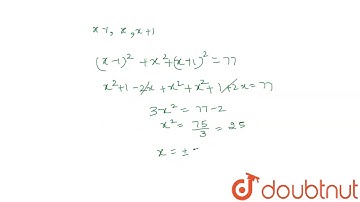 x-1, x, x+1
(x-1)² + x² + (x+1)² = 77
x²+1-2x + x² + x²+1+2x = 77
3x² = 77-2
x² = 75/3 = 25
x = ± -
doubtnut